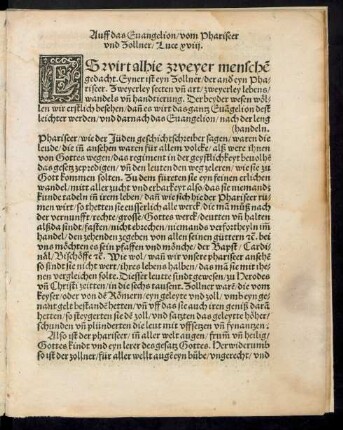 Auff das Euangelion/ vom Phariseer
vnd Zollner/ Luce xviij.
ES wirt alhie zweyer menschē
gedacht. Eyner ist eyn Zollner/ der and̄ eyn Pha
riseer. Zweyerley secten vn̄ art/ zweyerley lebens/
wandels vn̄ handtierung. Der beyder wesen wöl/
len wir erstlich besehen/ dañ es wirt das gantz Euāgelion dest
leichter werden/ vnd darnach das Euangelion/ nach der leng
(handeln.
Phariseer/ wie der Jüden geschichtschreiber sagen/ waren die
leude/ die in ansehen waren für allem volcke/ als were ihnen
von Gottes wegen/ das regiment in der geystlichkeyt benolhē
das gesetz zepredigen/ vn̄ den leuten den weg zeleren/ wie sie zu
Gott kommen solten. Zu dem füreten sie eyn feinen erlichen
wandel/ mit aller zucht vnd erbarkeyt also/ das sie niemands
kunde tadeln in irem leben/ dañ wie sich hie der Phariseer rü/
men wirt/ so thetten sie eusserlich alle werck/ die mā müß nach
der vernunfft/ rechte/ grosse/ Gottes werck/ deuten/ vn̄ halten
als da sindt/ fasten/ nicht ebrechen/ niemands verfortheyln im
handel/ den zehenden zegeben von allen seinen güttern ꝛc. bei
vns möchten es sein pfaffen vnd mönche/ der Bapst/ Cardi/
näl/ Bischöffe ꝛc. Wie wol/ wañ wir vnsere phariseer ansehē
so sindt sie nicht wert/ ihres lebens halben/ das mā sie mit ihe/
nen vergleichen solte. Dieser leutte sindt gewesen/ zu Herodes
vn̄ Christi zeitten/ in die sechs tausent. Zollner warē/ die vom
keyser/ oder von dē Römern/ eyn geleyte vnd zoll/ vmb eyn ge/
nant gelt bestanden hetten/ vn̄ vff das sie auch iren geniß darā
hetten/ so steygerten sie dē zoll/ vnd satzten das geleytte höher/
schunden vn̄ plünderten die leut mit vffsetzen vn̄ fynantzen.
Also ist der phariseer/ in aller welt augen/ frum̄ vn̄ heilig/
Gottes kindt vnd eyn lerer des gesatz Gottes. Herwiderumb
so ist der zollner/ für aller wellt augē eyn bübe/ vngerecht/ vnd